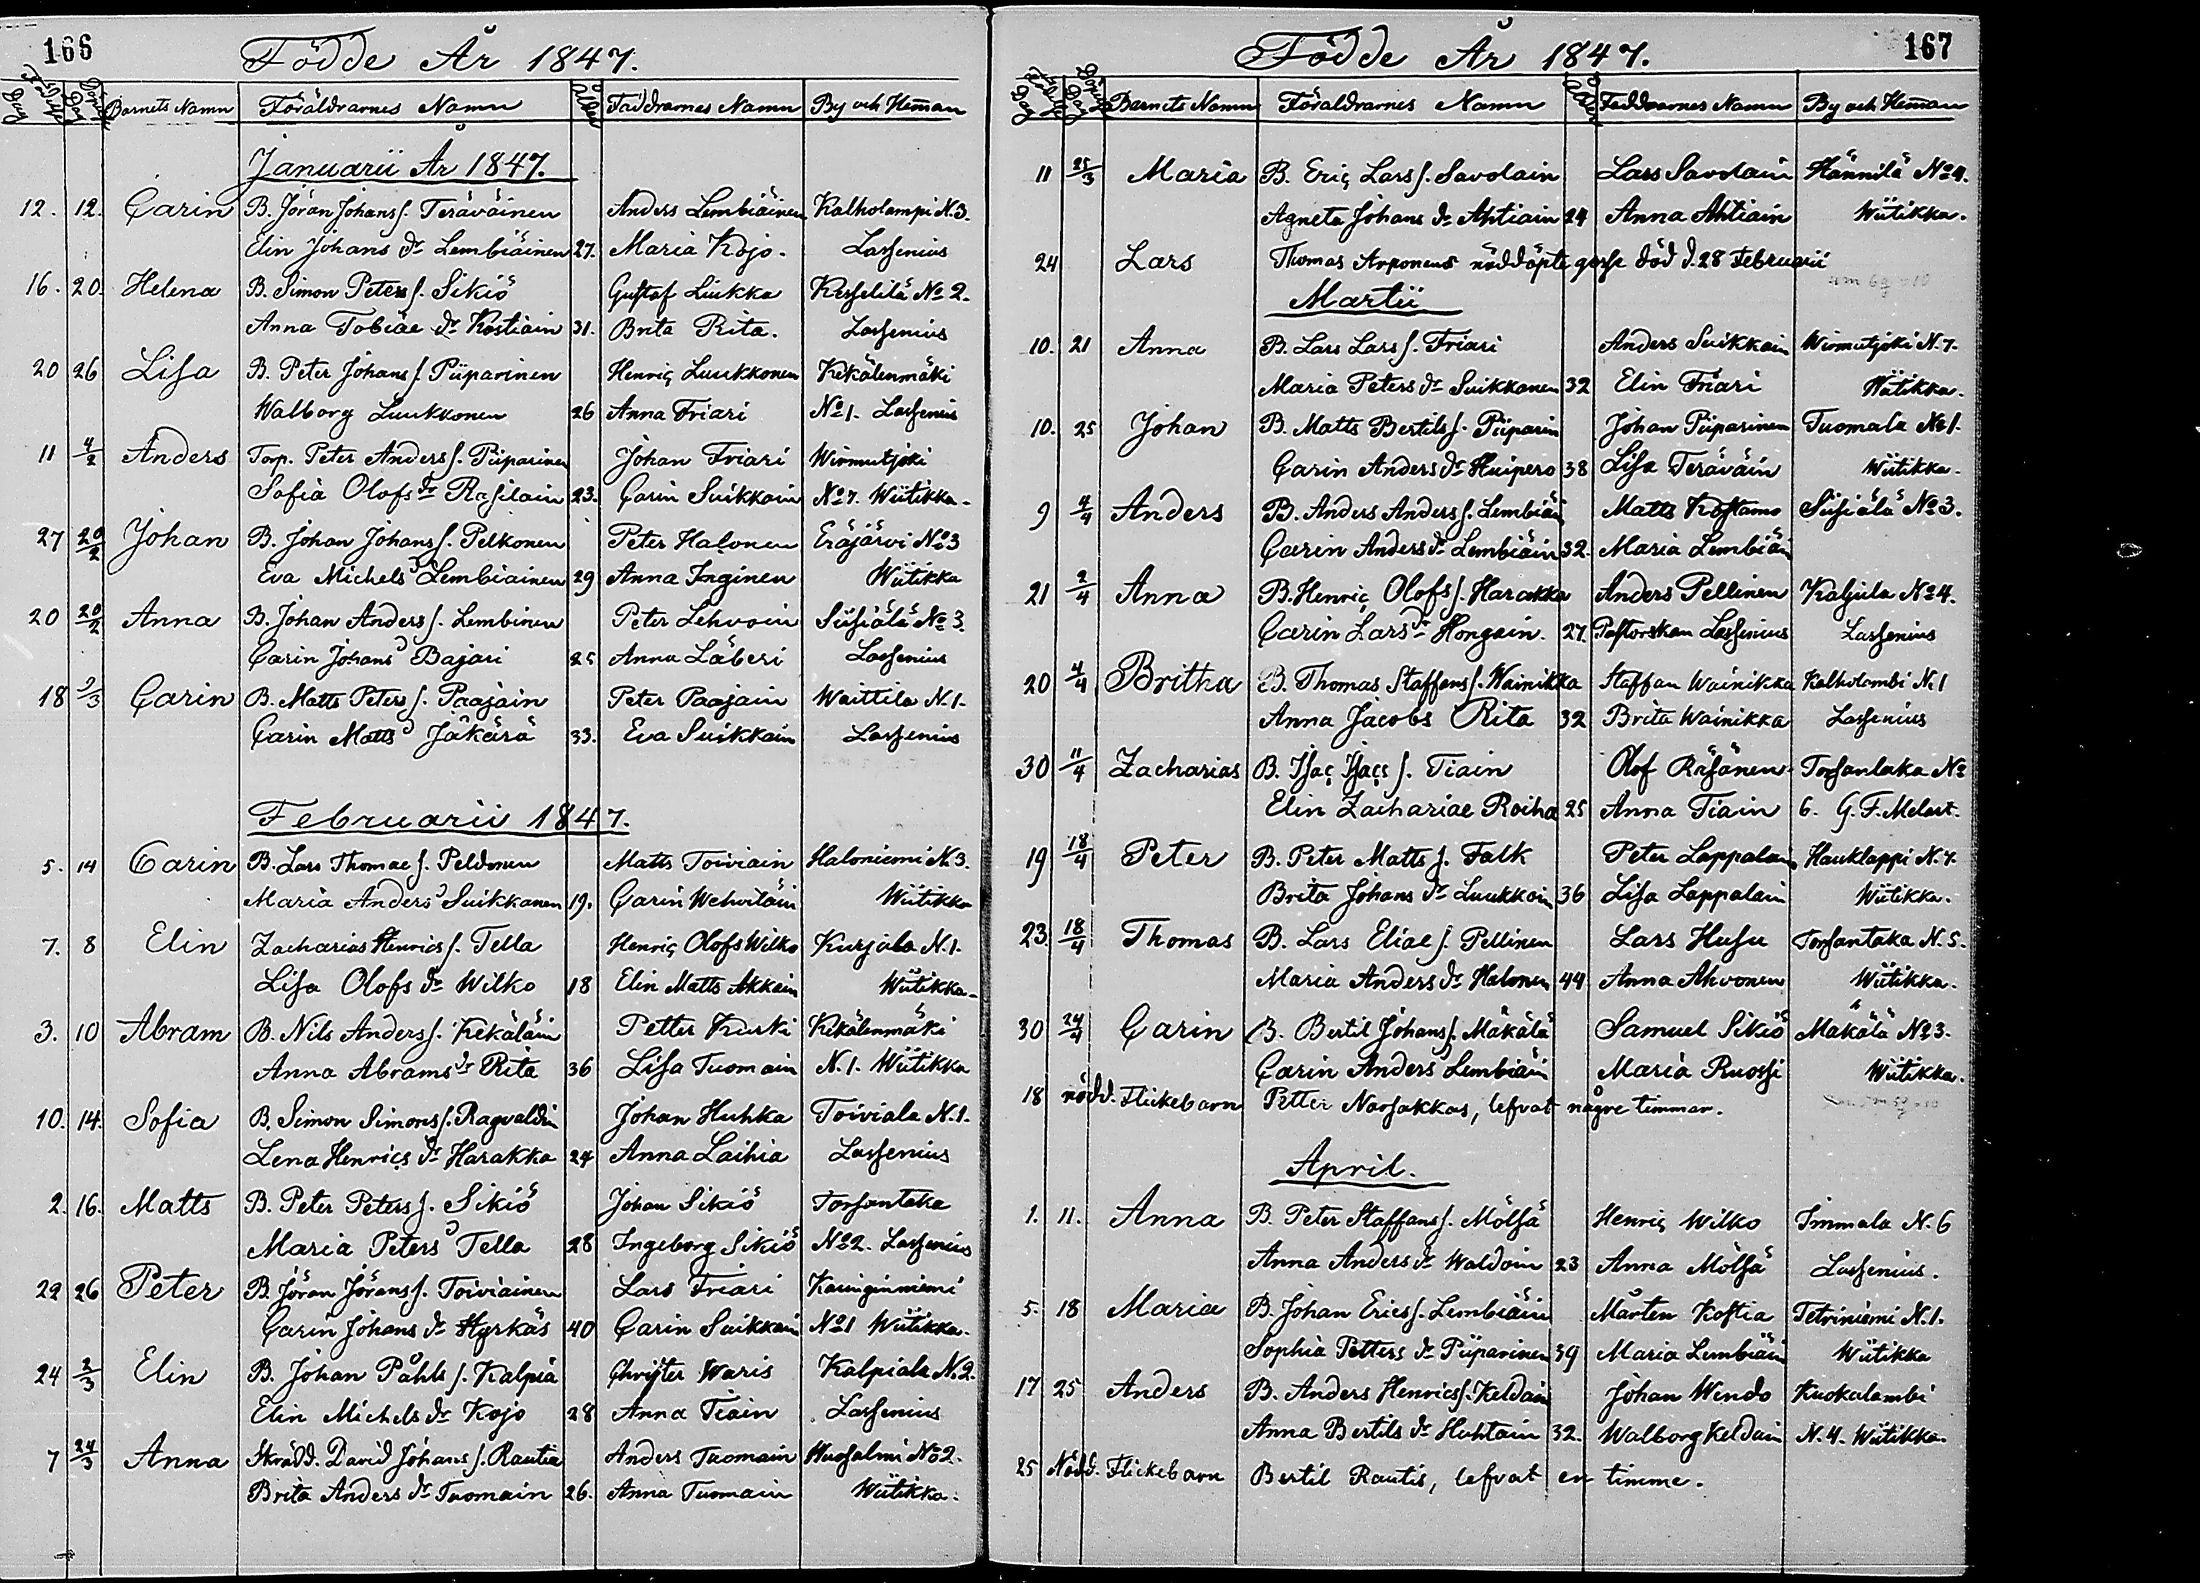 166
Födde År 1847.
Födelse Dag Döpelse Dag Barnets Namn Föräldrarnes Namn Ålder Faddrarnes Namn By och Heman
Januarii År 1847.
12. 12. Carin B. Jöran Johans s. Teräväinen Anders Lembiäinen Kalholampi N. 3.
Elin Johans dr Lembiäinen 27. Maria Kojo. Lassenius
16. 20. Helena B. Simon Peters s. Sikiö Gustaf Liukka Kesselilä No 2.
Anna Tobiae dr Kostiain 31. Brita Rita. Lassenius
20 26 Lisa B. Peter Johans s. Piiparinen Henric Luukkonen Kekälenmäki
Walborg Luukkonen 26 Anna Friari No 1. Lassenius
11 4/2 Anders Torp. Peter Anders s. Piiparinen Johan Friari Wirmutjoki
Sofia Olofs dr Rasilain 23. Carin Suikkain No 7. Wiitikka
27 20/2 Johan B. Johan Johans s. Pelkonen Peter Halonen Eräjärvi No 3
Eva Michels d Lembiainen 29 Anna Inginen Wiitikka
20 20/2 Anna B. Johan Anders s. Lembinen Peter Lehvoin Siisiälä No 3.
Carin Johans d Bajari 25 Anna Läberi Lassenius
18 2/3 Carin B. Matts Peters s. Paajain Peter Paajain Waittila N. 1.
Carin Matts d Jäkärä 33. Eva Suikkain Lassenius
Februarii 1847.
5. 14 Carin B. Lars Thomae s. Peldonen Matts Toiviain Haloniemi N. 3.
Maria Anders d Suikkanen 19. Carin Wehviläin Wiitikka
7. 8 Elin Zacharias Henrics s. Tella Henric Olofs Wilko Kurjala N. 1.
Lisa Olofs dr Wilko 18 Elin Matts Akkain Wiitikka
3. 10 Abram B. Nils Anders s. Kekäläin Petter Kurki Kekälenmäki
Anna Abrams dr Rita 36 Lisa Tuomain N. 1. Wiitikka
10. 14. Sofia B. Simon Simons s. Ragvaldin Johan Huhka Toiviala N. 1.
Lena Henrics dr Harakka 24 Anna Laihia Lassenius
2. 16. Matts B. Peter Peters s. Sikiö Johan Sikiö Torsantaka
Maria Peters d Tella 28 Ingeborg Sikiö No 2. Lassenius
22 26 Peter B. Jöran Jörans s. Toiviainen Lars Friari Kainginniemi
Carin Johans dr Hyrkäs 40 Carin Suikkain No 1 Wiitikka.
24 2/3 Elin B. Johan Påhls s. Kalpia Christer Waris Kalpiala N. 2.
Elin Michels dr Kojo 28 Anna Tiain Lassenius
7 24/3 Anna Skrädd. David Johans s. Rautia Anders Tuomain Huosalmi No 2.
Brita Anders dr Tuomain 26. Anna Tuomain Wiitikka.
167
Födde År 1847.
Födelse Dag Döpelse Dag Barnets Namn Föräldrarnes Namn Ålder Faddrarnes Namn By och Heman
11 25/3 Maria B. Eric Lars s. Savolain Lars Savolain Hännilä No 4.
Agneta Johans dr Ahtiain 24 Anna Ahtiain Wiitikka.
24 Lars Thomas Arponens nöddöpte gosse död d. 28 Februarii
Martii
10. 21 Anna B. Lars Lars s. Friari Anders Suikkain Wirmutjoki N. 7.
Maria Peters dr Suikkanen 32 Elin Friari Wiitikka.
10. 25 Johan B. Matts Bertils s. Piiparin Johan Piiparinen Tuomala No 1.
Carin Anders dr Huipero 38 Lisa Teräväin Wiitikka.
9 4/4 Anders B. Anders Anders s. Lembiäi Matts Kostamo Siisiälä No 3.
Carin Anders dr Lembiäin 32. Maria Lembiäin
21 2/4 Anna B. Henric Olofs s. Harakka Anders Pellinen Kaljula No 4.
Carin Lars dr Hongain. 27. Pastorskan Lassenius Lassenius
20 4/4 Britha B. Thomas Staffans s. Wainikka Staffan Wainikka Kalholambi N. 1
Anna Jacobs Rita 32 Brita Wainikka Lassenius
30 11/4 Zacharias B. Isac Isacs s. Tiain Olof Räsänen Torsantaka No
Elin Zachariae Roiha 25 Anna Tiain 6. G. F. Melart.
19 18/4 Peter B. Peter Matts s. Falk Peter Lappalain Hauklappi N. 7.
Brita Johans dr Luukkain 36 Lisa Lappalain Wiitikka.
23. 18/4 Thomas B. Lars Eliae s. Pellinen Lars Husu Torsantaka N. 5.
Maria Anders dr Halonen 44 Anna Ahvonen Wiitikka.
30 24/4 Carin B. Bertil Johans s. Mäkälä Samuel Sikiö Mäkälä No 3.
Carin Anders d Lembiäin Maria Ruossi Wiitikka.
18 nödd. Flickebarn Petter Narsakkas, lefvat några timmar.
April.
1. 11. Anna B. Peter Staffans s. Mölsä Henric Wilko Immala N. 6
Anna Anders dr Waldoin 23 Anna Mölsä Lassenius.
5. 18 Maria B. Johan Erics s. Lembiäin Mårten Kostia Tetriniemi N. 1.
Sophia Petters dr Piiparinen 39 Maria Lembiäin Wiitikka
17 25 Anders B. Anders Henrics s. Keldain Johan Wendo Kuokalambi
Anna Bertils dr Huhtain 32. Walborg Keldain N. 4. Wiitikka.
25 Nödd. Flickebarn Bertil Rautis, lefvat en timme.